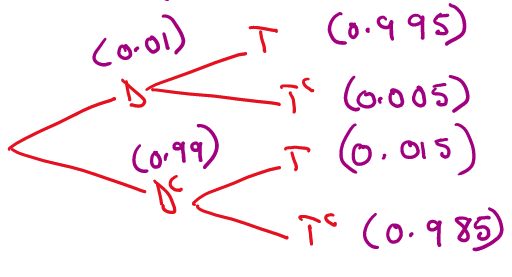 (0.01) T (0.995)
D T^c (0.005)
(0.99) T (0.015)
D^c T^c (0.985)